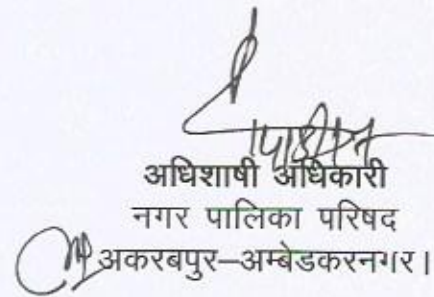 अधिशाषी अधिकारी
नगर पालिका परिषद
अकरबपुर–अम्बेडकरनगर।